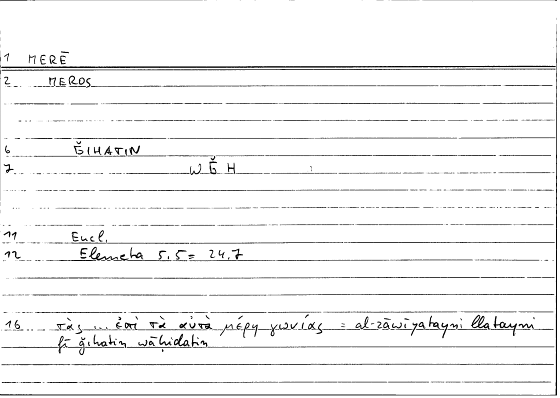 1 MERĒ
2 MEROS
6 ǦIHATIN
7 WǦH
11 Eucl.
12 Elementa 5.5 = 24.7
16 τὰς ... ἐπὶ τὰ αὐτὰ μέρη γωνίας = al-zāwiyatayni llatayni
fī ǧihatin wāḥidatin